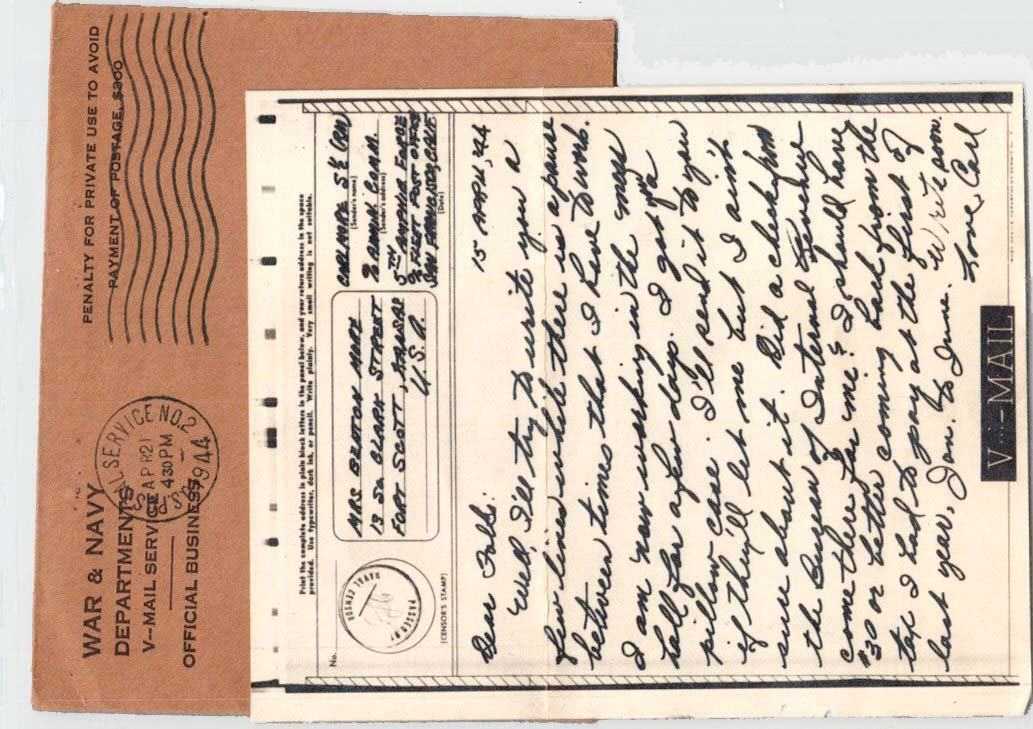 PENALTY FOR PRIVATE USE TO AVOID
PAYMENT OF POSTAGE, $300
WAR & NAVY
DEPARTMENTS
V--MAIL SERVICE
OFFICIAL BUSINESS
SERVICE NO. 2
APR 21
4 30 PM
1944
Print the complete address in plain block letters in the panel below, and your return address in the space
provided. Use typewriter, dark ink, or pencil. Write plainly. Very small writing is not suitable.
No.
PASSED BY
NAVAL CENSOR
(CENSOR'S STAMP)
MRS. BENTON MOPE
13 So CLARK STREET
FORT SCOTT, KANSAS
U.S.A.
CARL MOPE S 1/c (RM)
(Sender's name)
COMM.
(Sender's address)
5TH AMPHIB FORCE
% FLEET POST OFFICE
SAN FRANCISCO, CALIF
(Date)
15 APRIL, 44
Dear Folks:
Well, I'll try to write you a
few lines while there is a pause
between times that I have to work.
I am now working in the mess
hall for a few days. I got ya
pillow case. I'll send it to you,
if they'll let me but I aint
sure about it. Did a check from
the Bureau of Internal Revenue
come there for me? I should have
$30 or better coming back from the
tax I had to pay at the first of
last year, Jan. to June. Write soon.
Love, Carl
V--MAIL